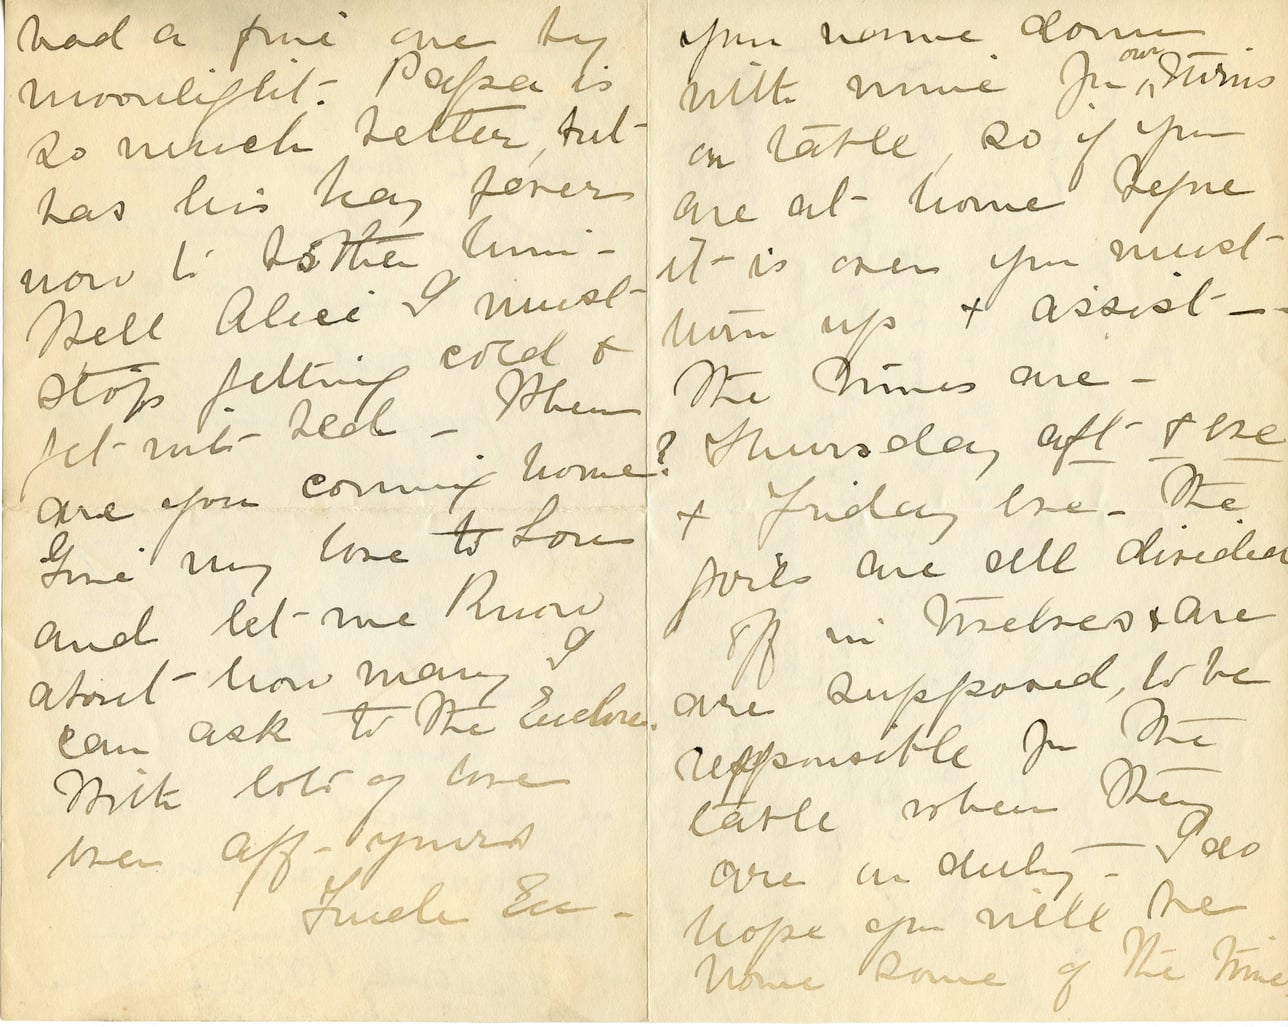 had a fine one by
moonlight. Papa is
so much better, but
has his hay fever
now to bother him -
Well Alice I must
stop getting cold &
get into bed - When
are you coming home?
Give my love to Lou
and let me know
about how many I
can ask to the Euchre.
With lots of love
ever aff - yours
your name down
with mine for our turns
on table, so if you
are at home before
it is over you must
turn up & assist -
The times are -
Thursday aft & eve
& Friday eve - The
girls are all divided
off in twelves & are
are supposed, to be
responsible for the
table when they
are on duty - I do
hope you will be
home some of the time